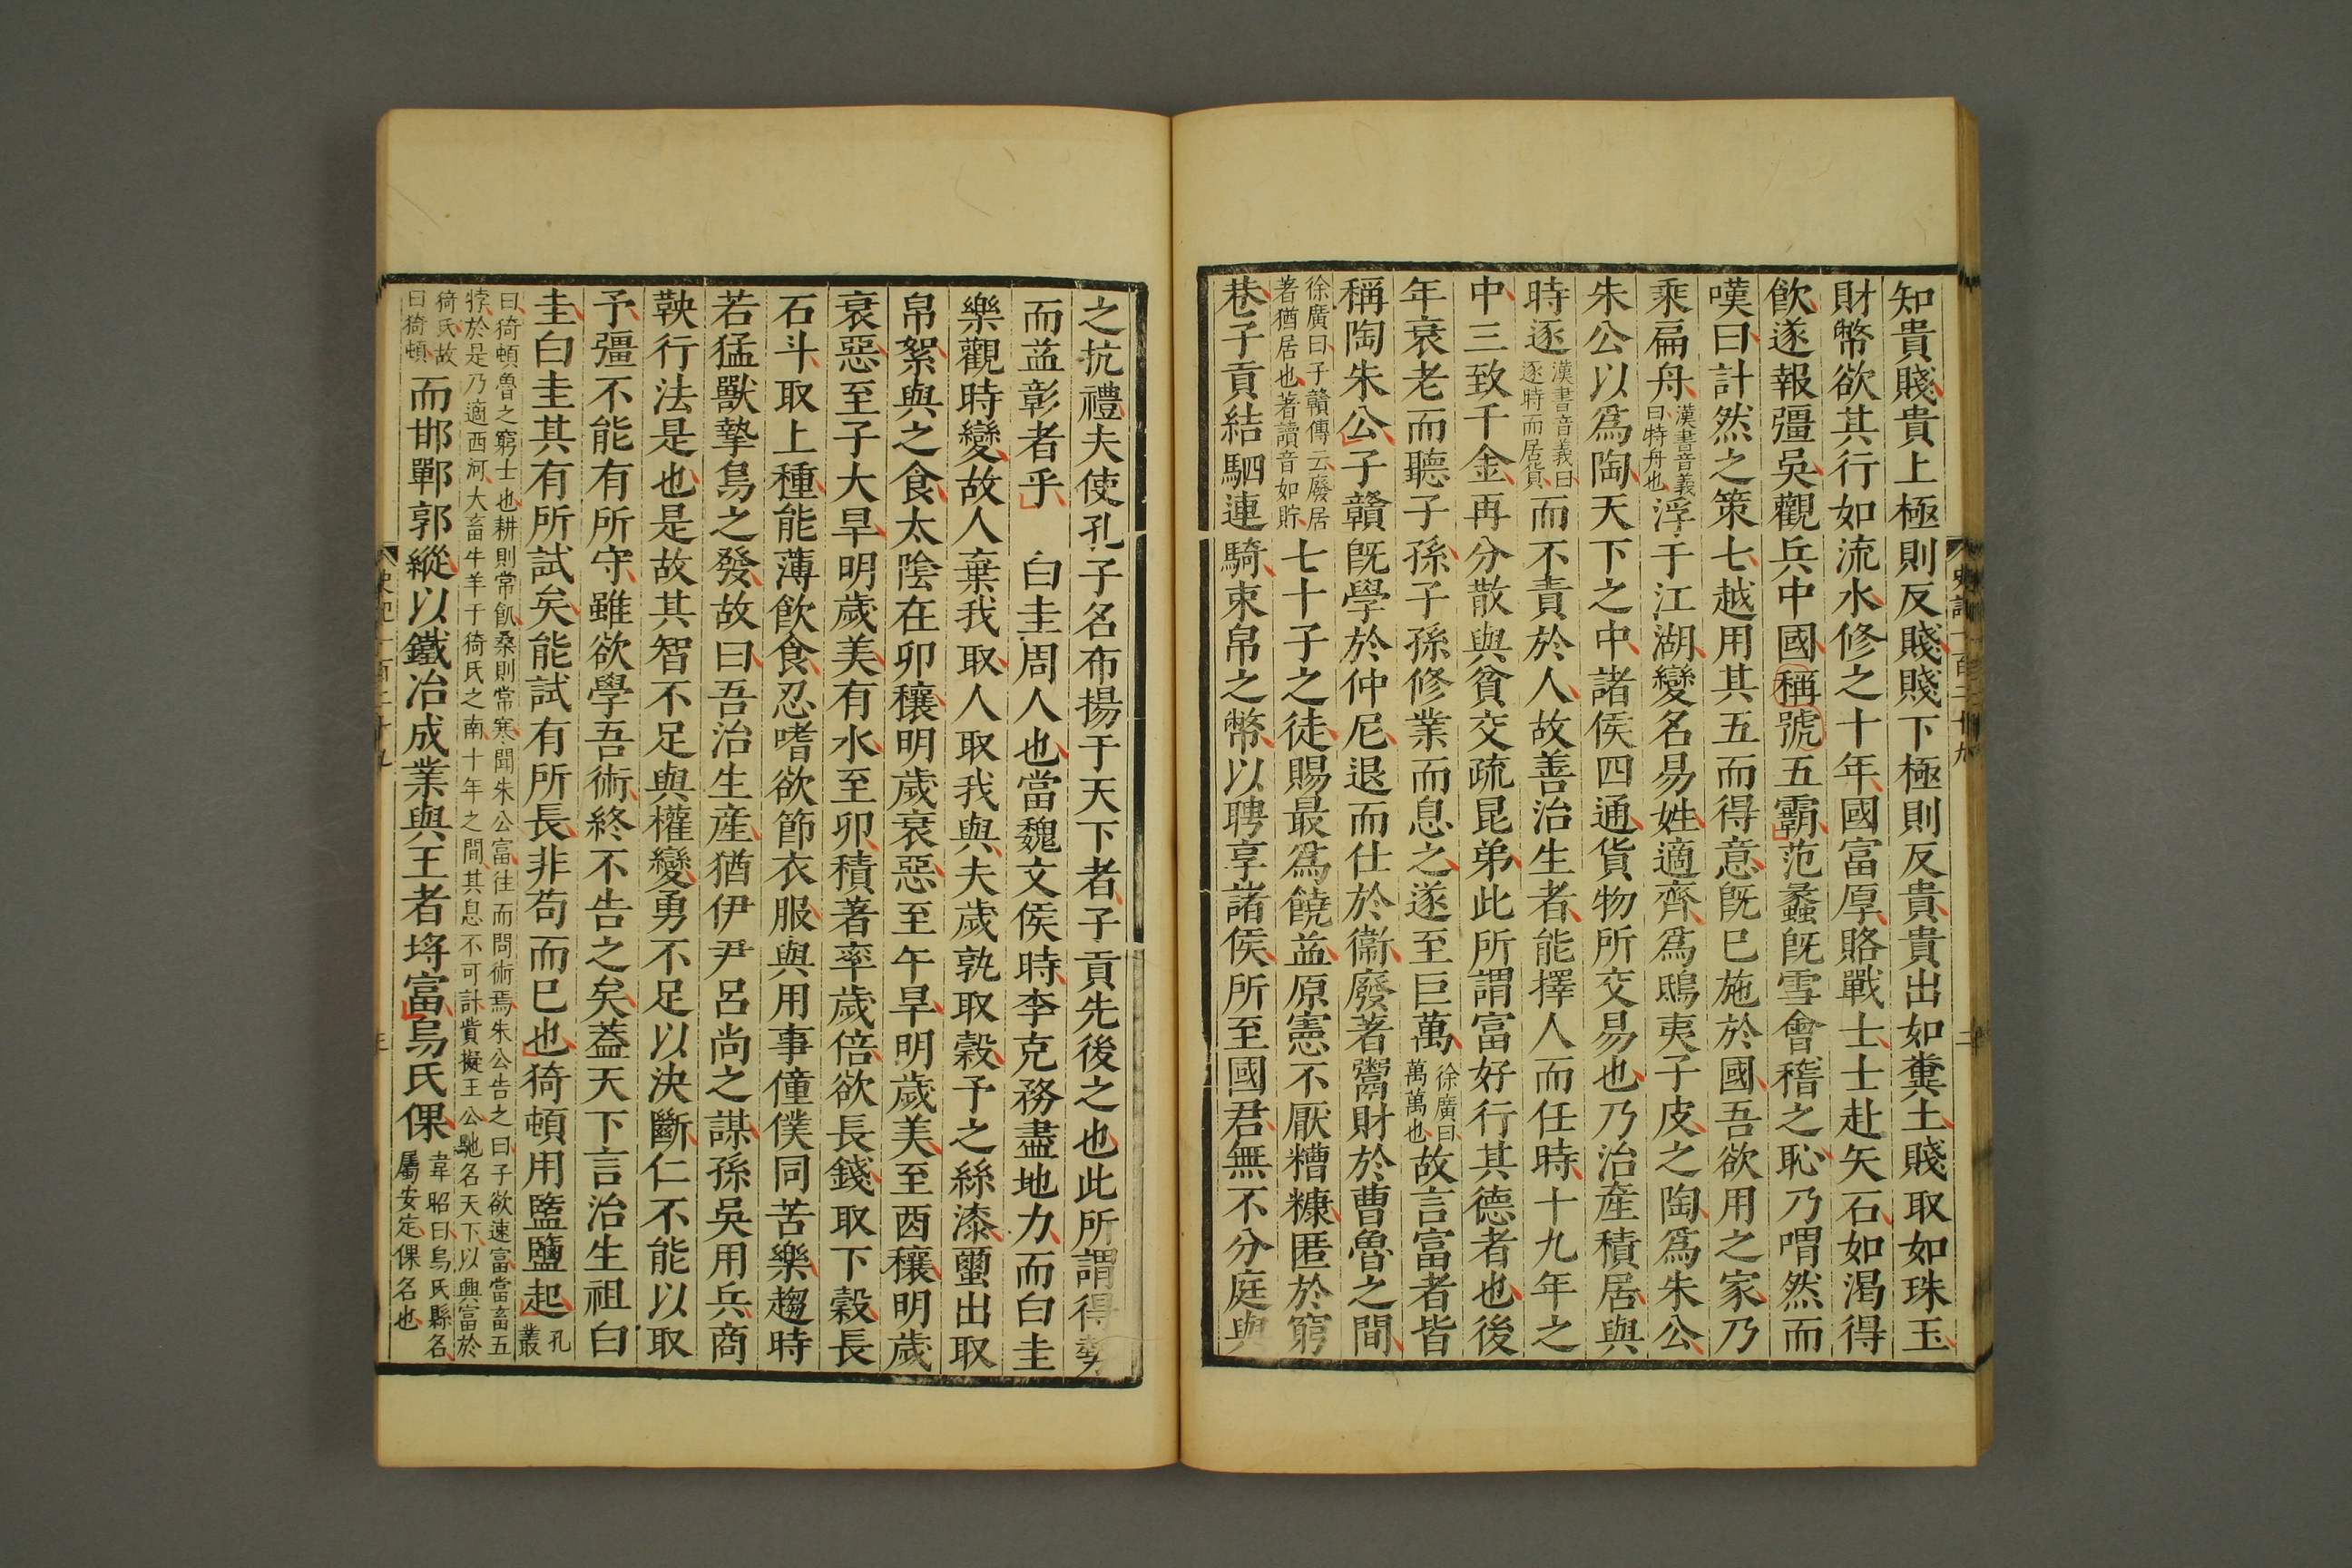 知貴賤貴上極則反賤賤下極則反貴貴出如糞土賤取如珠玉
財幣欲其行如流水修之十年國富厚賂戰士士赴矢石如渴得
飲遂報彊吳觀兵中國稱號五霸范蠡旣雪會稽之恥乃喟然而
嘆曰計然之策七越用其五而得意旣巳施於國吾欲用之家乃
乘扁舟漢書音義曰特舟也浮于江湖變名易姓適齊爲鴟夷子皮之陶爲朱公
朱公以爲陶天下之中諸侯四通貨物所交易也乃治產積居與
時逐漢書音義曰逐時而居貨而不責於人故善治生者能擇人而任時十九年之
中三致千金再分散與貧交疏昆弟此所謂富好行其德者也後
年衰老而聽子孫子孫修業而息之遂至巨萬徐廣曰萬萬也故言富者皆
稱陶朱公子贛旣學於仲尼退而仕於衞廢著鬻財於曹魯之間
徐廣曰子贛傳云廢居著猶居也著讀音如貯七十子之徒賜最爲饒益原憲不厭糟糠匿於窮
巷子貢結駟連騎束帛之幣以聘享諸侯所至國君無不分庭與
之抗禮夫使孔子名布揚于天下者子貢先後之也此所謂得埶
而益彰者乎 白圭周人也當魏文侯時李克務盡地力而白圭
樂觀時變故人棄我取人取我與夫歲孰取穀予之絲漆蠒出取
帛絮與之食太陰在卯穰明歲衰惡至午旱明歲美至酉穰明歲
衰惡至子大旱明歲美有水至卯積著率歲倍欲長錢取下穀長
石斗取上種能薄飮食忍嗜欲節衣服與用事僮僕同苦樂趨時
若猛獸摯鳥之發故曰吾治生產猶伊尹呂尚之謀孫吳用兵商
鞅行法是也是故其智不足與權變勇不足以決斷仁不能以取
予彊不能有所守雖欲學吾術終不告之矣蓋天下言治生祖白
圭白圭其有所試矣能試有所長非苟而巳也猗頓用盬鹽起孔叢
曰猗頓魯之窮士也耕則常飢桑則常寒聞朱公富往而問術焉朱公告之曰子欲速富當畜五
牸於是乃適西河大畜牛羊于猗氏之南十年之間其息不可計貲擬王公馳名天下以興富於
猗氏故曰猗頓而邯鄲郭縱以鐵冶成業與王者埒富烏氏倮韋昭曰烏氏縣名屬安定倮名也